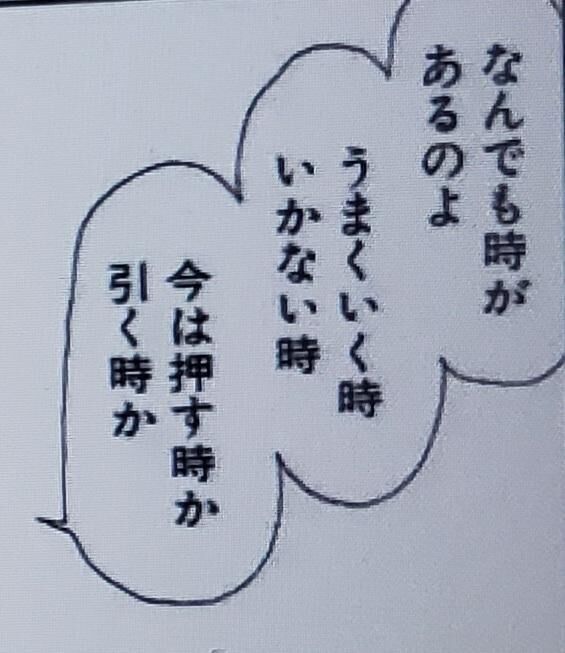 なんでも時が
あるのよ
うまくいく時
いかない時
今は押す時か
引く時か